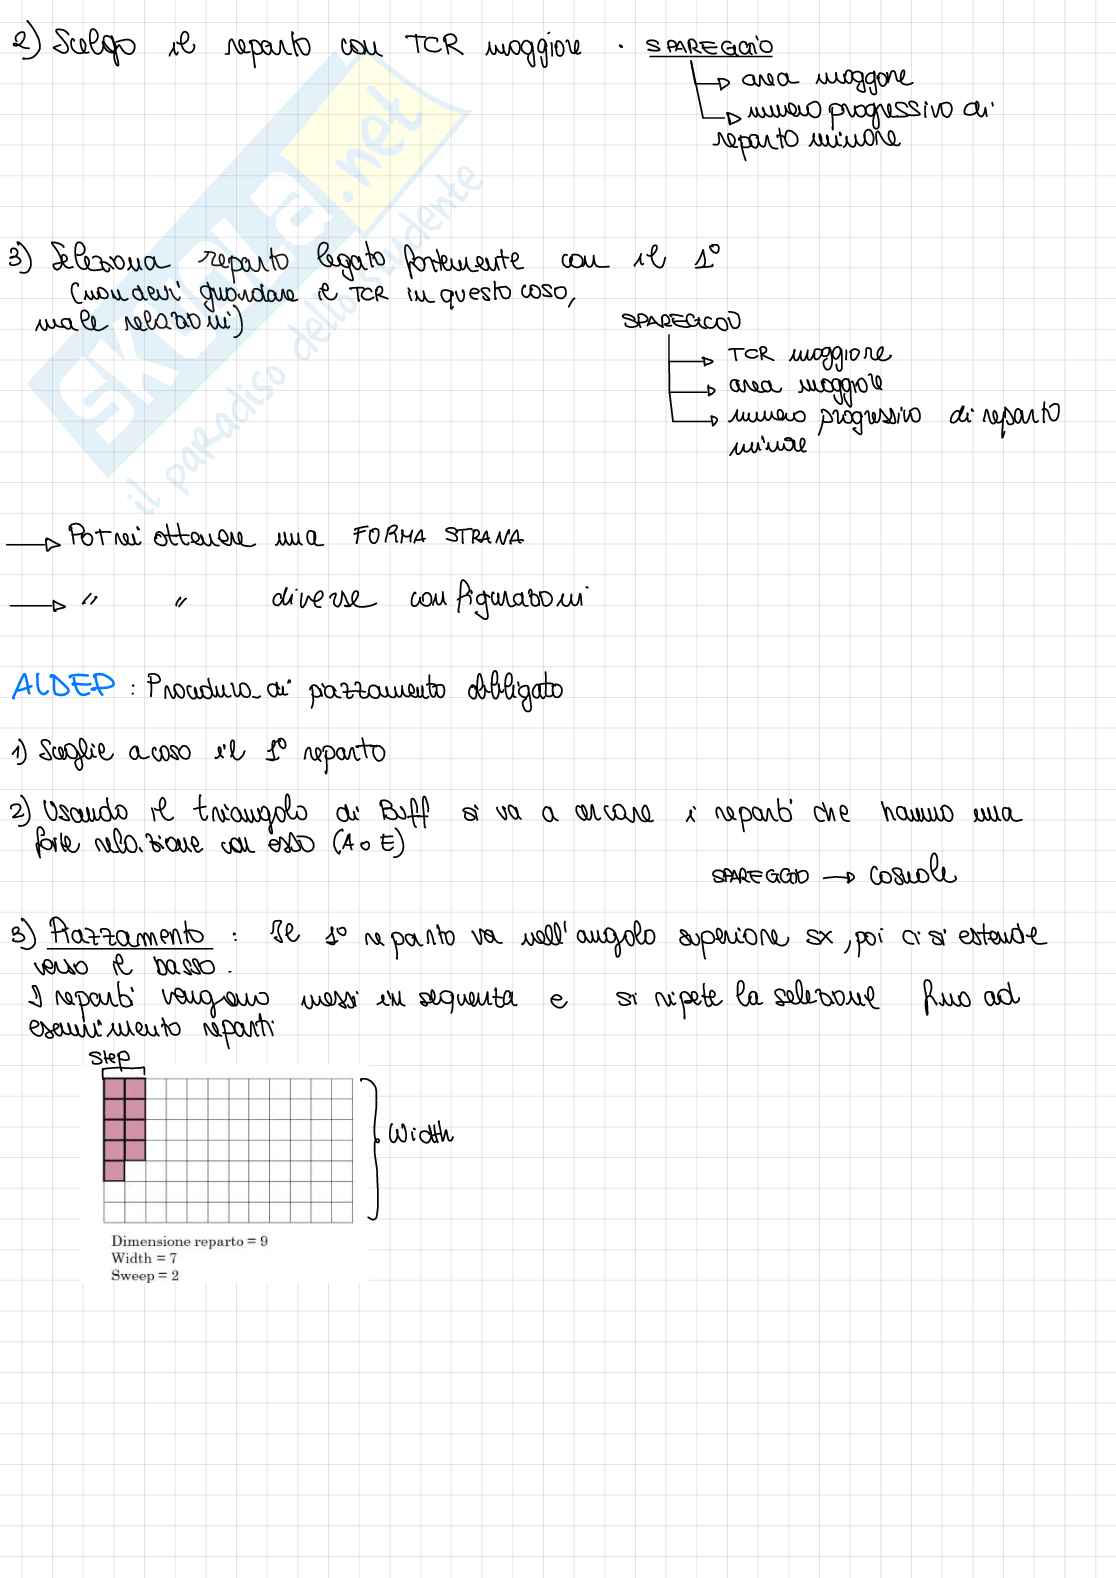 2) Scelgo il reparto con TCR maggiore . SPAREGGIO
→ area maggiore
→ numero progressivo di
reparto minore
3) Seleziona reparto legato fortemente con il 1°
(non devi guardare il TCR in questo caso,
ma le relazioni)
SPAREGGIO
→ TCR maggiore
→ area maggiore
→ numero progressivo di reparto
minore
→ Potrei ottenere una FORMA STRANA
→ " " diverse configurazioni
ALDEP : Procedura di piazzamento obbligato
1) Sceglie a caso il 1° reparto
2) Usando il triangolo di Buff si va a cercare i reparti che hanno una
forte relazione con esso (A o E)
SPAREGGIO → casuale
3) Piazzamento : Il 1° reparto va nell'angolo superiore sx, poi ci si estende
verso il basso.
I reparti vengono messi in sequenza e si ripete la selezione fino ad
esaurimento reparti
Step
Width
Dimensione reparto = 9
Width = 7
Sweep = 2
SKUOLA.net
il paradiso dello studente